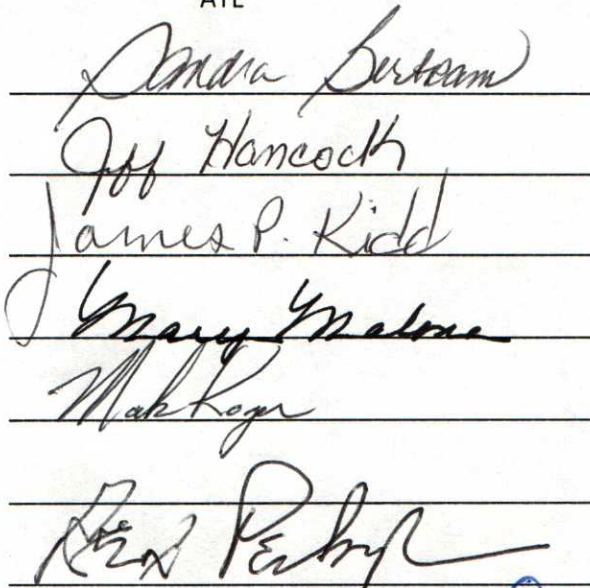 AYE
Sandra Bertram
Jeff Hancock
James P. Kidd
Mary Malone
Mark Roger